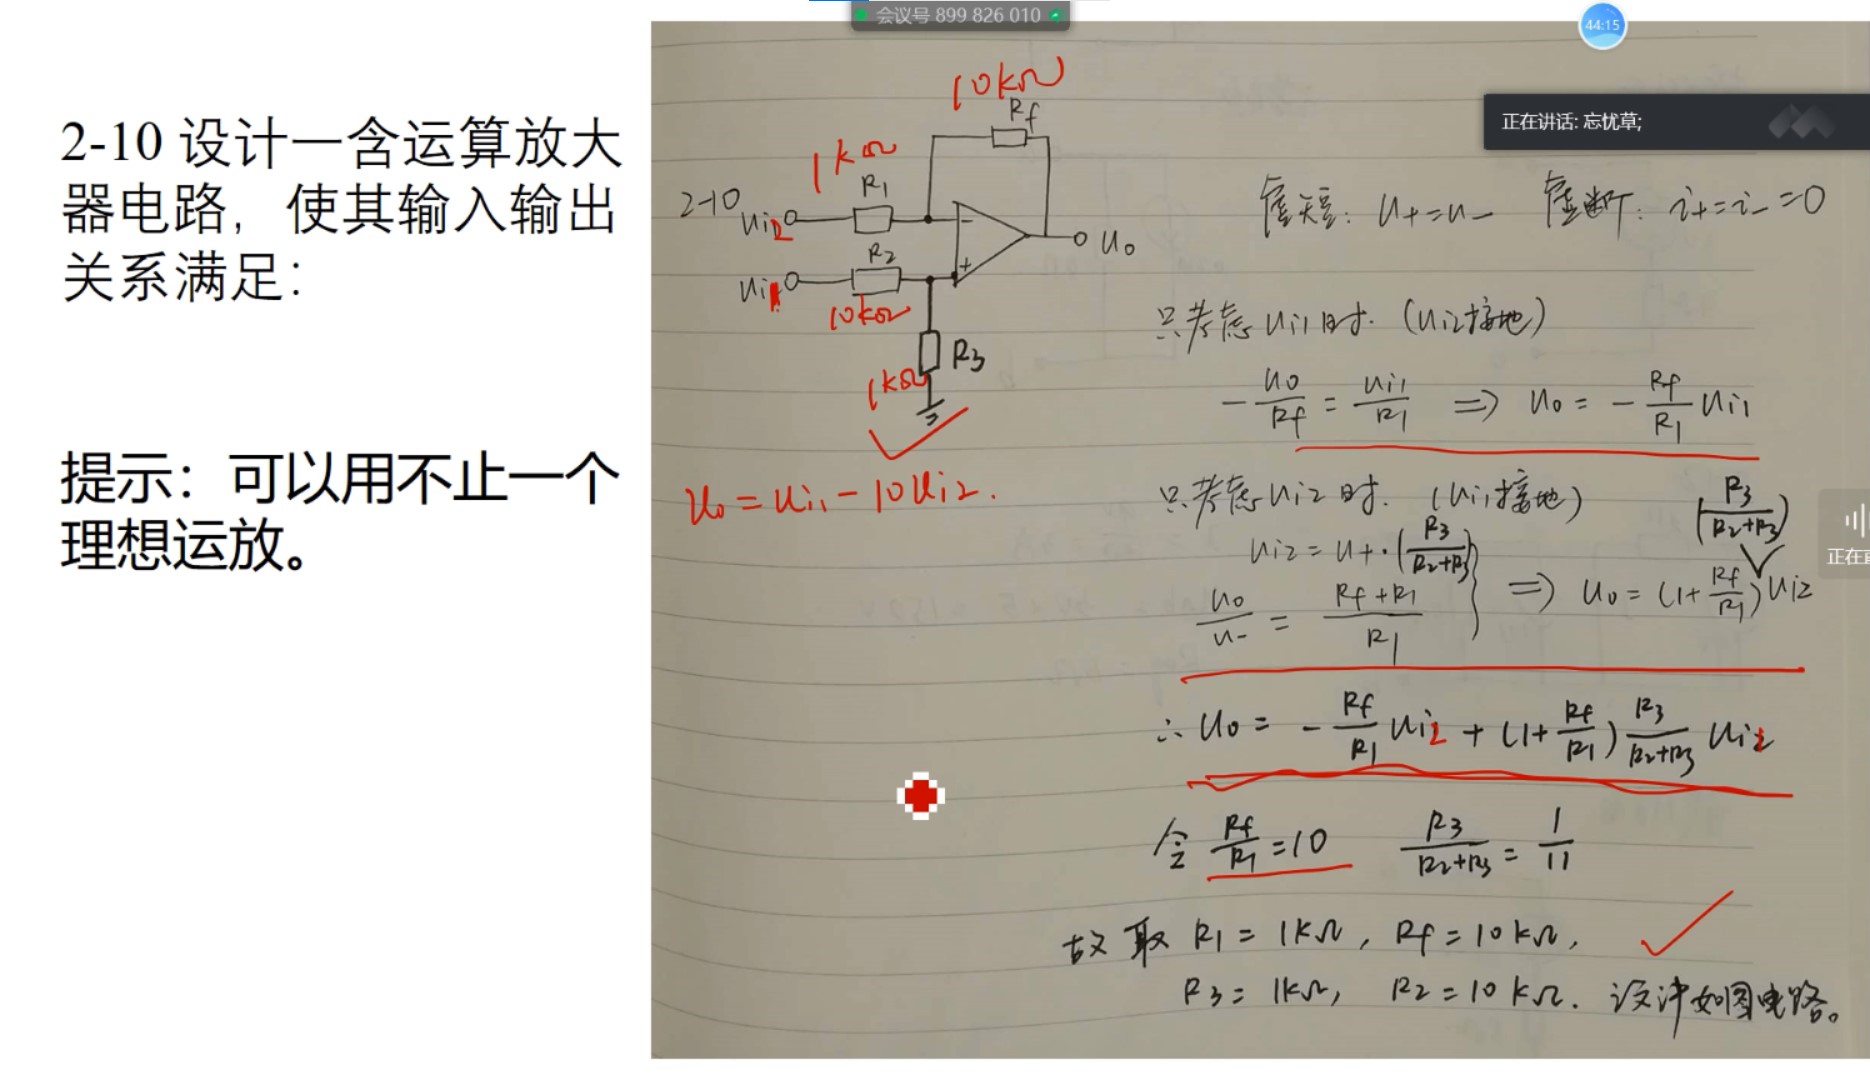 会议号 899 826 010
44:15
正在讲话: 忘忧草;
2-10 设计一含运算放大
器电路，使其输入输出
关系满足：
提示：可以用不止一个
理想运放。
10kΩ
Rf
1kΩ
R1
2-10
Ui2
R2
Ui1
10kΩ
-
+
Uo
R3
1kΩ
Uo = Ui1 - 10Ui2.
虚短: U+ = U- 虚断: i+ = i- = 0
只考虑Ui1时. (Ui2接地)
- Uo/Rf = Ui1/R1 => Uo = - Rf/R1 Ui1
只考虑Ui2时. (Ui1接地)
(R3/(R2+R3))
Ui2 = U+·(R3/(R2+R3))
Uo/U- = (Rf+R1)/R1 } => Uo = (1+Rf/R1)Ui2
正在
∴ Uo = - Rf/R1 Ui2 + (1+Rf/R1) R3/(R2+R3) Ui1
令 Rf/R1 = 10 R3/(R2+R3) = 1/11
故取 R1 = 1kΩ, Rf = 10kΩ,
R3 = 1kΩ, R2 = 10kΩ. 设计如图电路。